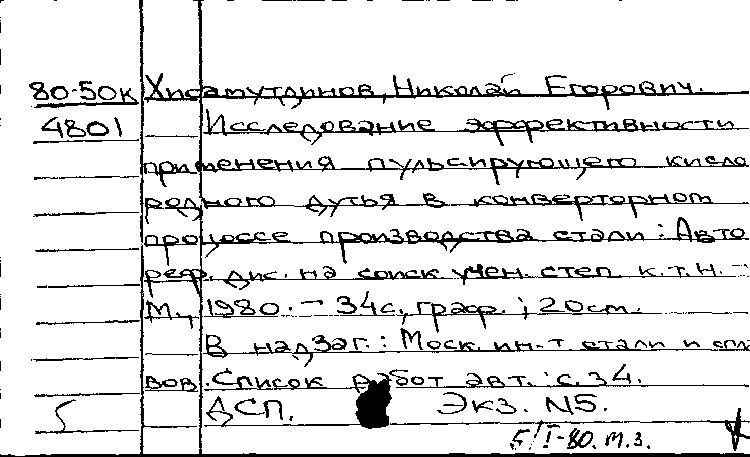 80-50к Хисамутдинов, Николай Егорович.
4801 Исследование эффективности
применения пульсирующего кисло
родного дутья в конверторном
процессе производства стали: Авто
реф. дис. на соиск. учен. степ. к.т.н. -
М., 1980. - 34с, граф.; 20см.
В надзаг.: Моск. ин-т стали и спла
вов. Список работ авт.: с. 34.
5 ДСП. Экз. N5.
5/I-80. м.з.